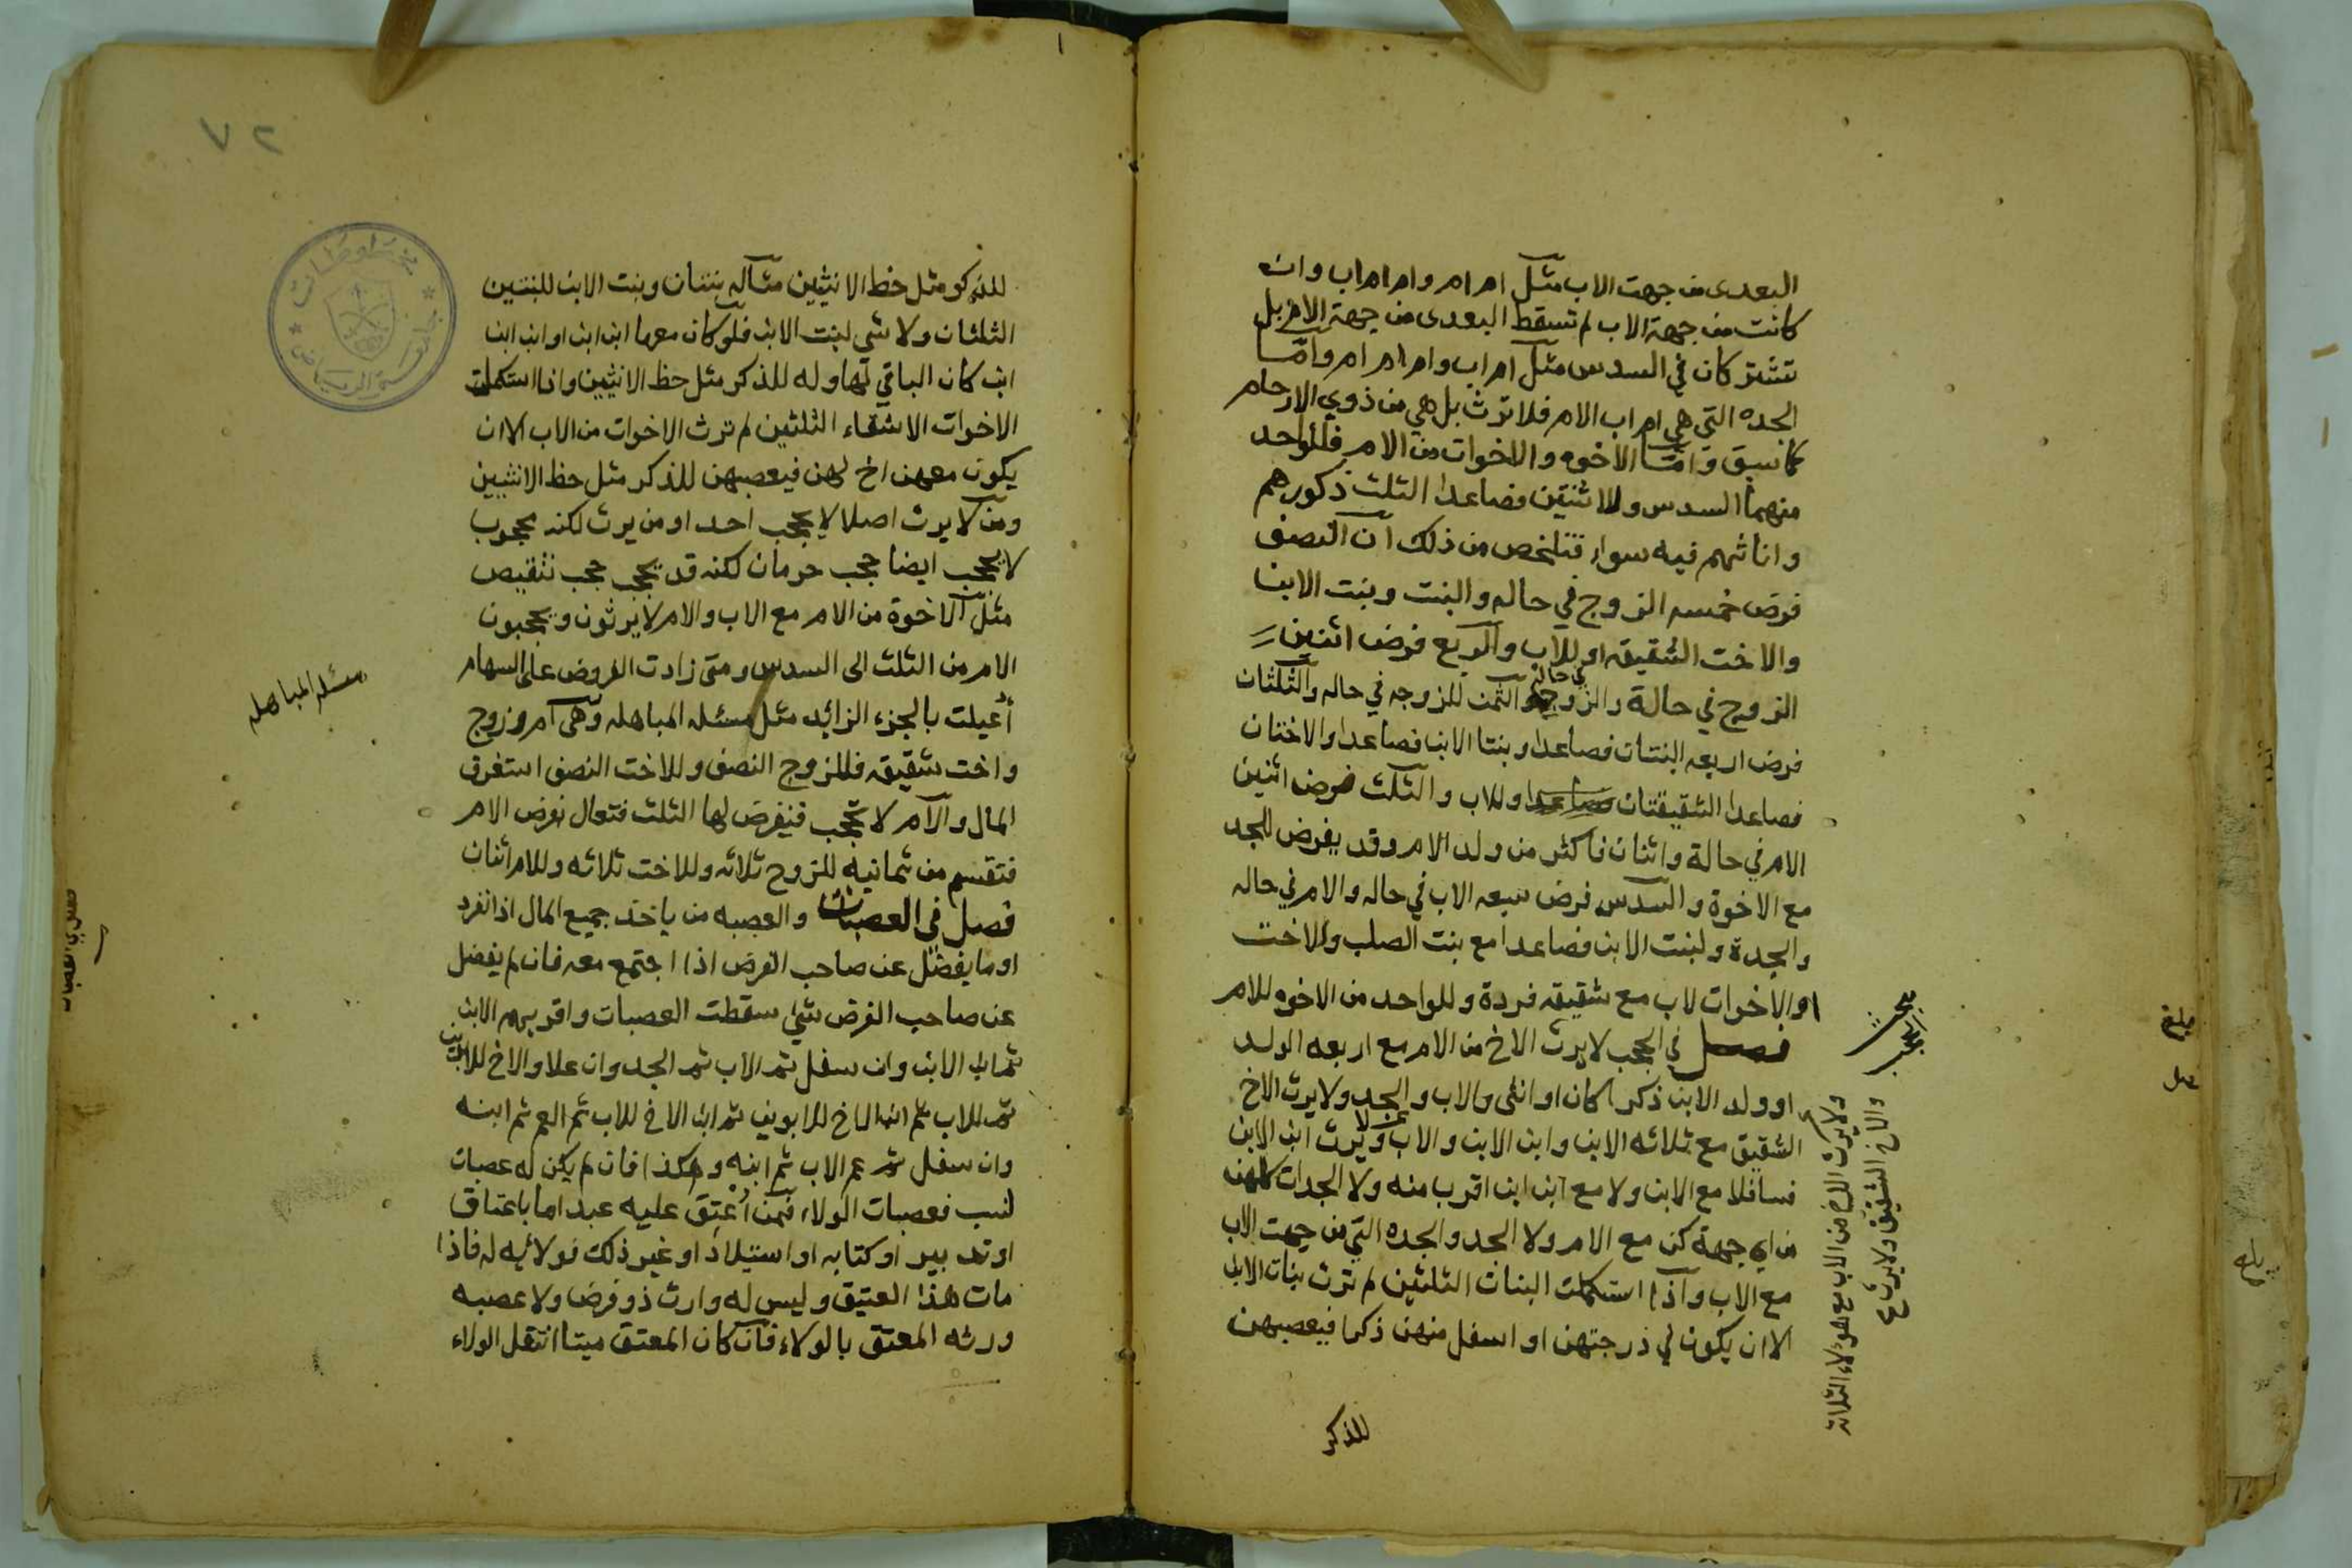 البعدى من جهت الاب مثل ام ام وام ام اب وان
كانت من جهة الاب لم تسقط البعدى من جهة الام بل
تشتركان في السدس مثل ام اب وام ام ام واما
الجده التي هي ام اب الام فلا ترث بل هي من ذوي الارحام
كما سبق واما الاخوه والاخوات من الام فللواحد
منهما السدس وللاثنين فصاعدا الثلث ذكورهم
واناثهم فيه سواء فتلخص من ذلك ان النصف
فرض خمسه الزوج في حاله والبنت وبنت الابن
والاخت الشقيقه او للاب والربع فرض اثنين
الزوج في حالة والزوجه في حاله والثمن للزوجه في حاله والثلثان
فرض اربعه البنتان فصاعدا وبنتا الابن فصاعدا والاختان
فصاعدا الشقيقتان فصاعدا وللاب والثلث فرض اثنين
الام في حالة واثنان فاكثر من ولد الام وقد يفرض للجد
مع الاخوة والسدس فرض سبعه الاب في حاله والام في حاله
والجدة ولبنت الابن فصاعدا مع بنت الصلب وللاخت
او الاخوات لاب مع شقيقه فردة وللواحد من الاخوه للام
فصل في الحجب لا يرث الاخ من الام مع اربعه الولد
او ولد الابن ذكرا كان او انثى والاب والجد ولا يرث الاخ
الشقيق مع ثلاثه الابن وابن الابن والاب ولا يرث ابن الابن
فسافلا مع الابن ولا مع ابن ابن اقرب منه ولا الجدات كلهن
من اي جهة كن مع الام ولا الجد والجده التي من جهت الاب
مع الاب واذا استكملت البنات الثلثين لم ترث بنات الابن
الا ان يكون في درجتهن او اسفل منهن ذكرا فيعصبهن
للذكر
ولا يرث الاخ من الاب مع هولاء الثلاثه
والاخ الشقيق ولا يرث
مبحث الحجب
٧٢
للذكر مثل حظ الانثيين مثاله بنتان وبنت الابن للبنتين
الثلثان ولا شي لبنت الابن فلو كان معها ابن ابن او ابن ابن
ابن كان الباقي لها وله للذكر مثل حظ الانثيين واذا استكملت
الاخوات الاشقاء الثلثين لم ترث الاخوات من الاب الا ان
يكون معهن اخ لهن فيعصبهن للذكر مثل حظ الانثيين
ومن لا يرث اصلا لا يحجب احد او من يرث لكنه محجوب
لا يحجب ايضا حجب حرمان لكنه قد يحجب حجب تنقيص
مثل الاخوة من الام مع الاب والام لا يرثون ويحجبون
الام من الثلث الى السدس ومتى زادت الفروض على السهام
أعيلت بالجزء الزائد مثل مسئله المباهله وهى ام وزوج
واخت شقيقه فللزوج النصف وللاخت النصف استغرق
المال والام لا تحجب فيفرض لها الثلث فتعال بفرض الام
فتقسم من ثمانية للزوج ثلاثه وللاخت ثلاثه وللام اثنان
فصل في العصبات والعصبه من ياخذ جميع المال اذا انفرد
او ما يفضل عن صاحب الفرض اذا اجتمع معه فان لم يفضل
عن صاحب الفرض شئ سقطت العصبات واقربهم الابن
ثم ابن الابن وان سفل ثم الاب ثم الجد وان علا والاخ للابوين
ثم للاب ثم ابن الاخ للابوين ثم ابن الاخ للاب ثم العم ثم ابنه
وان سفل ثم عم الاب ثم ابنه وهكذا فان لم يكن له عصبات
نسب فعصبات الولاء فمن أعتق عليه عبد اما باعتاق
او تدبير او كتابه او استيلاد او غير ذلك فولائه له فاذا
مات هذا العتيق وليس له وارث ذو فرض ولا عصبه
ورثه المعتق بالولاء فان كان المعتق ميتا انتقل الولاء
مسئله المباهله